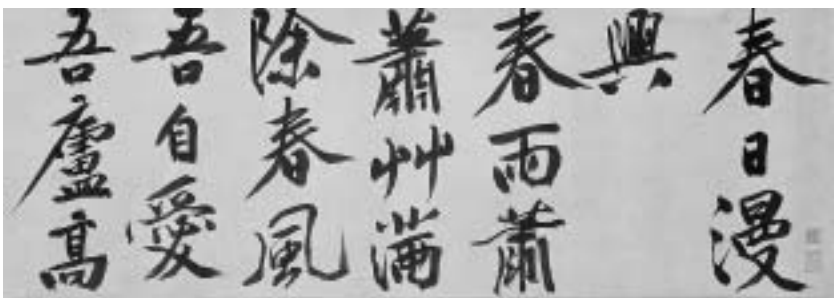 春日漫
興
春雨蕭
蕭艸滿
除春風
吾自愛
吾廬高